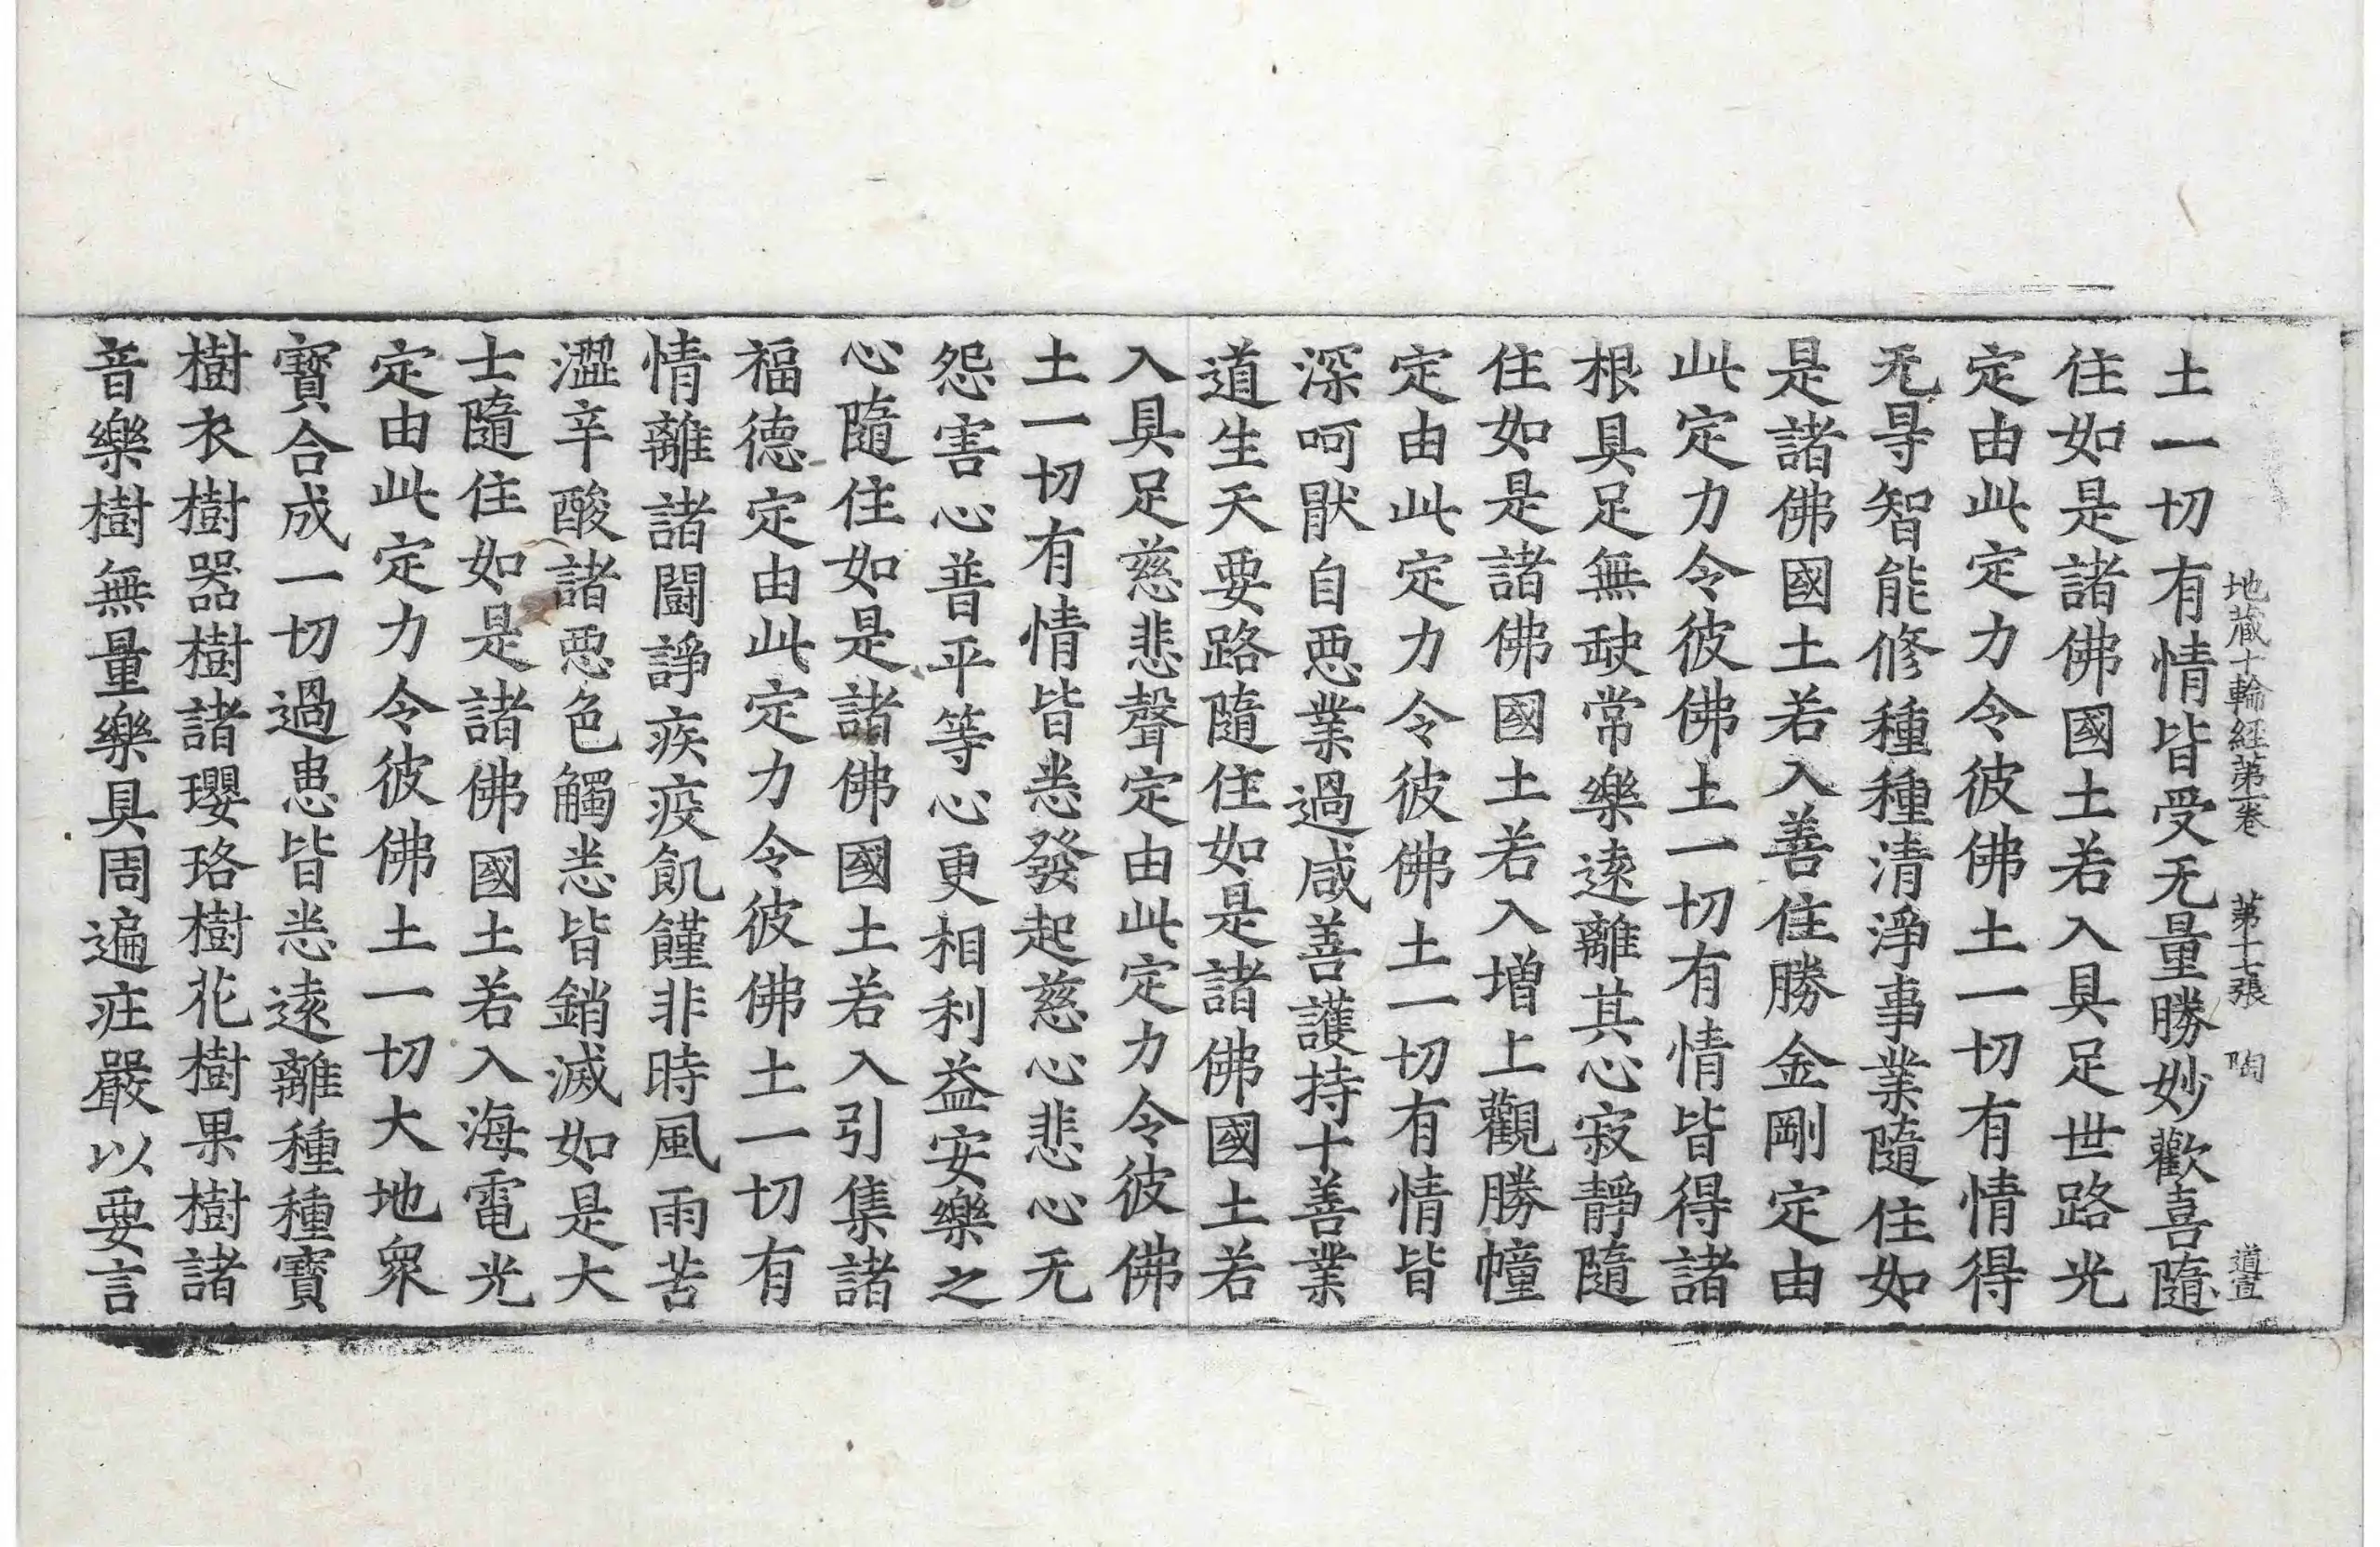 地藏十輪經第一卷 第十七張 陶 道宣
土一切有情皆受无量勝妙歡喜隨
住如是諸佛國土若入具足世路光
定由此定力令彼佛土一切有情得
无㝵智能修種種清淨事業隨住如
是諸佛國土若入善住勝金剛定由
此定力令彼佛土一切有情皆得諸
根具足無缺常樂遠離其心寂靜隨
住如是諸佛國土若入增上觀勝幢
定由此定力令彼佛土一切有情皆
深呵猒自惡業過咸善護持十善業
道生天要路隨住如是諸佛國土若
入具足慈悲聲定由此定力令彼佛
土一切有情皆悉發起慈心悲心无
怨害心普平等心更相利益安樂之
心隨住如是諸佛國土若入引集諸
福德定由此定力令彼佛土一切有
情離諸鬪諍疾疫飢饉非時風雨苦
澀辛酸諸惡色觸悉皆銷滅如是大
士隨住如是諸佛國土若入海電光
定由此定力令彼佛土一切大地衆
寶合成一切過患皆悉遠離種種寶
樹衣樹器樹諸瓔珞樹花樹果樹諸
音樂樹無量樂具周遍莊嚴以要言